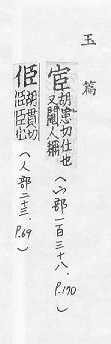 玉篇
宦 胡患切仕也
又閹人稱
(宀部一百三十八. P.170)
胡貫切
(人部二十三. P.69)